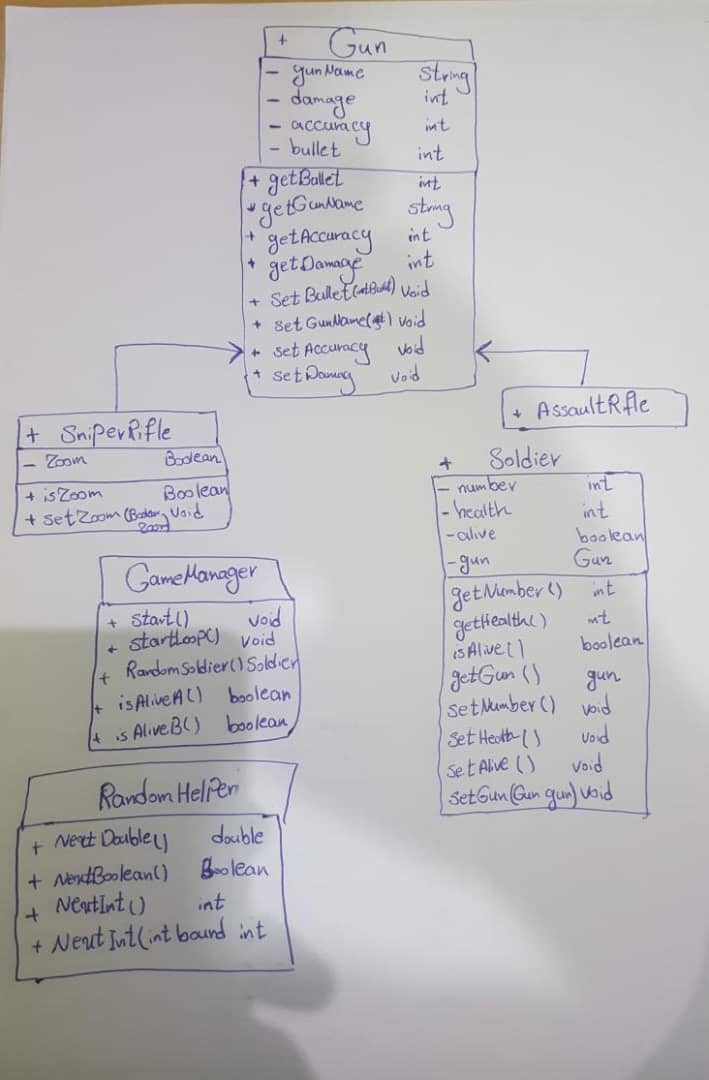 + Gun
- gunName String
- damage int
- accuracy int
- bullet int
+ getBullet int
+ getGunName string
+ getAccuracy int
+ getDamage int
+ Set Bullet( void
+ set GunName( ) void
+ set Accuracy void
+ set Damag void
+ SniperRifle
- Zoom Boolean
+ isZoom Boolean
+ setZoom (Boolean Zoom) Void
+ AssaultRifle
+ Soldier
- number int
- health int
- alive boolean
- gun Gun
getNumber() int
getHealth() int
isAlive() boolean
getGun () gun
setNumber() void
setHealth() void
setAlive () void
setGun(Gun gun) void
GameManager
+ Start() void
+ startLoop() void
+ RandomSoldier() Soldier
+ isAliveA() boolean
+ isAliveB() boolean
RandomHelper
+ NextDouble() double
+ NextBoolean() Boolean
+ NextInt() int
+ Next Int(int bound int